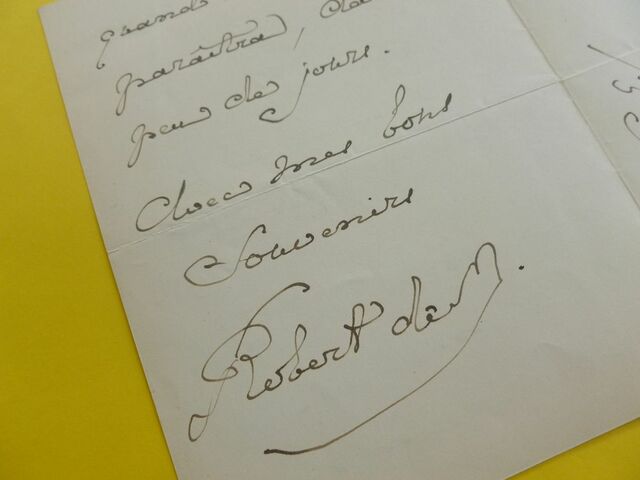 grands
paraîtra, da
peu de jours.
Avec mes bons
Souvenirs
Robert de M.